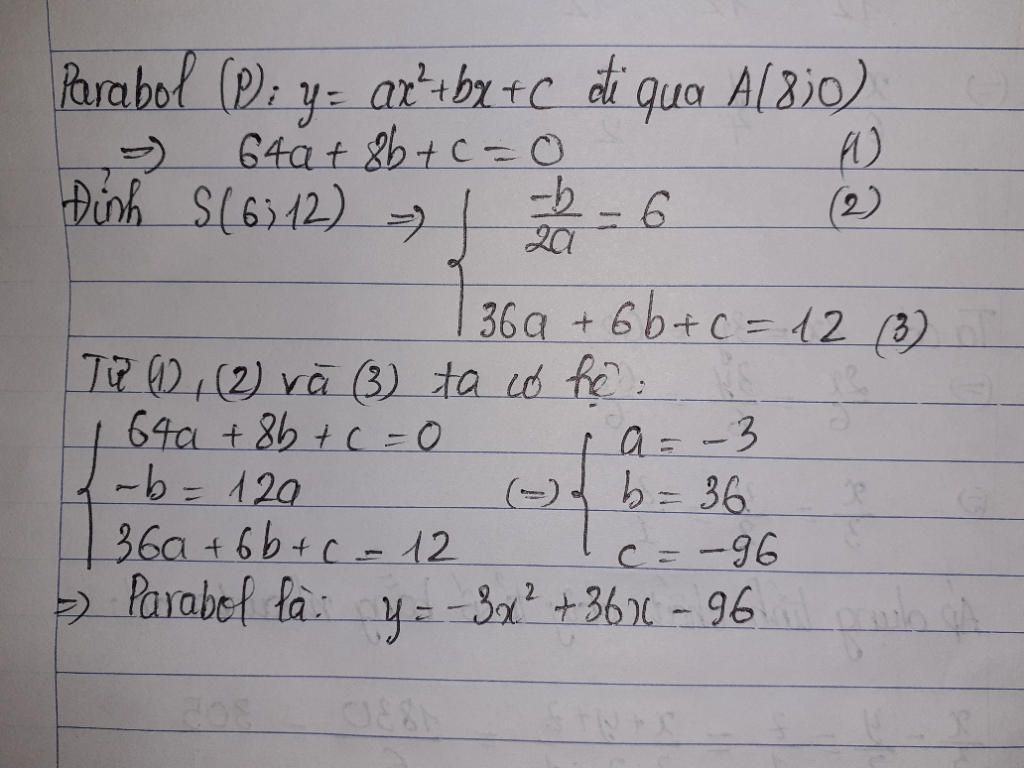 Parabol (P): y = ax² + bx + c đi qua A(8;0)
=> 64a + 8b + c = 0 (1)
Đỉnh S(6;12) => { -b/2a = 6 (2)
36a + 6b + c = 12 (3)
Từ (1), (2) và (3) ta có hệ:
{ 64a + 8b + c = 0
-b = 12a
36a + 6b + c = 12
(=) { a = -3
b = 36
c = -96
=> Parabol là: y = -3x² + 36x - 96